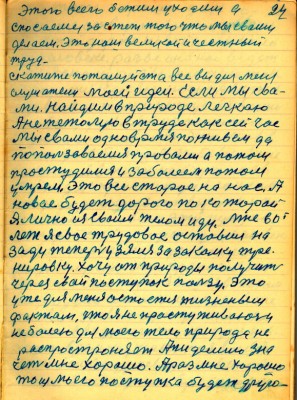 Этого всего боимся ухоам а 24
спасаемся за счет того что мы сваим
делаем. Это наш великий и честный
труд.
скажите пожалуйста все вы для меня
слушатели моей идеи. Если мы сва-
ми. Найдим в природе легкаю
А не тежолую в труде как сей час
Мы с вами одно время поживем да
попользоваемся провами а потом
простудимся и заболеем потом
умрем. Это все старое на нас. А
новае будет дорого по которай
Я лично и сваим телом иду. Мне 80
лет я свое трудовое оставил на
заду теперь узялся за закалку тре-
нировку. Хочу от природы получить
через свай поступак ползу. Это
уже для меня остается жизненым
фактам, что я не простуживаюся
не болею для моего тело природа не
распространяет Эпидемию зна
чет мне хорошо. А раз мне хорошо
то и у моего поступка будет друго-